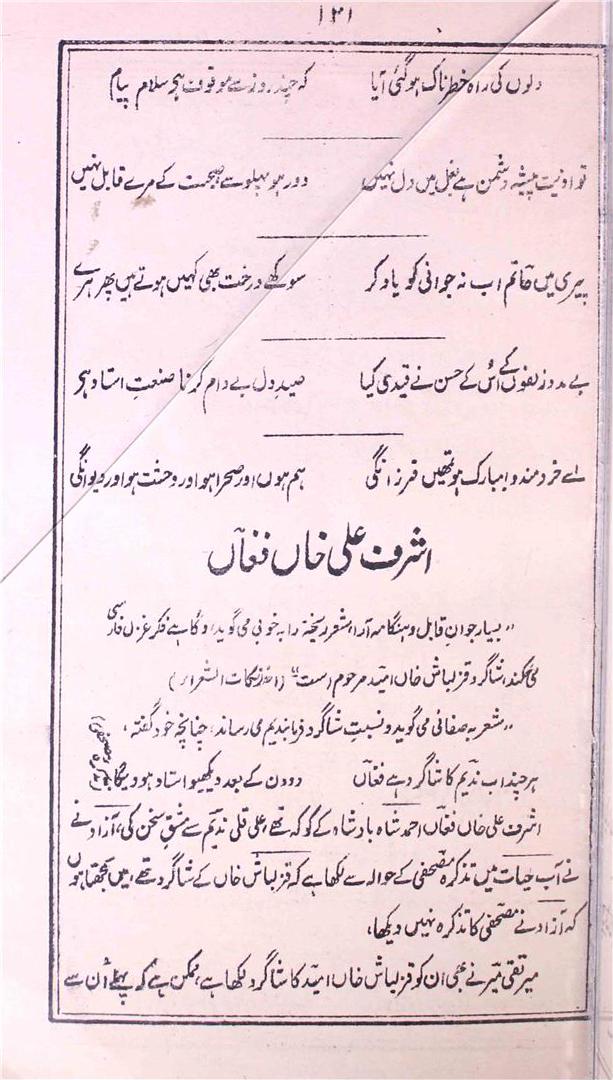 ۱۳۱
دلوں کی راہ خطرناک ہو گئی آیا کہ چند روز سے موقوف ہے سلام پیام
تو اذیت پیشہ دشمن ہے بغل میں دل نہیں دور ہو پہلو سے صحبت کے مرے قابل نہیں
پیری میں حاتم اب نہ جوانی کو یاد کر سوکھے درخت بھی کہیں ہوتے ہیں پھر ہرے
بے مدد زلفوں کے اُس کے حسن نے قیدی کیا صیدِ دل بے دام کرنا صنعتِ استاد ہے
اے خردمندو مبارک ہو تمھیں فرزانگی ہم ہوں اور صحرا ہو اور وحشت ہو اور دیوانگی
اشرف علی خاں فغاںؔ
،، بسیار جوان قابل و ہنگامہ آرا، شعر ریختہ را بہ خوبی می گوید، و گاہے فکر غزل فارسی
می کند، شاگرد قزلباش خاں امید مرحوم است،، (از نکات الشعراء)
،، شعر بہ صفائی می گوید و نسبتِ شاگرد فربا ندیم می رساند، چنانچہ خود گفتہ،
ہر چند اب ندیم کا شاگرد ہے فغاںؔ دو دن کے بعد دیکھیو استاد ہووے گا، (تذکرہ مصحفی)
اشرف علی خاں فغاںؔ احمد شاہ بادشاہ کے کوکہ تھے، علی قلی ندیم سے مشقِ سخن کی، آزاد نے
نے آب حیات میں تذکرہ مصحفی کے حوالہ سے لکھا ہے کہ قزلباش خاں کے شاگرد تھے، میں سمجھتا ہوں
کہ آزاد نے مصحفی کا تذکرہ نہیں دیکھا،
میر تقی میر نے بھی ان کو قزلباش خاں امید کا شاگرد لکھا ہے، ممکن ہے کہ پہلے اُن سے